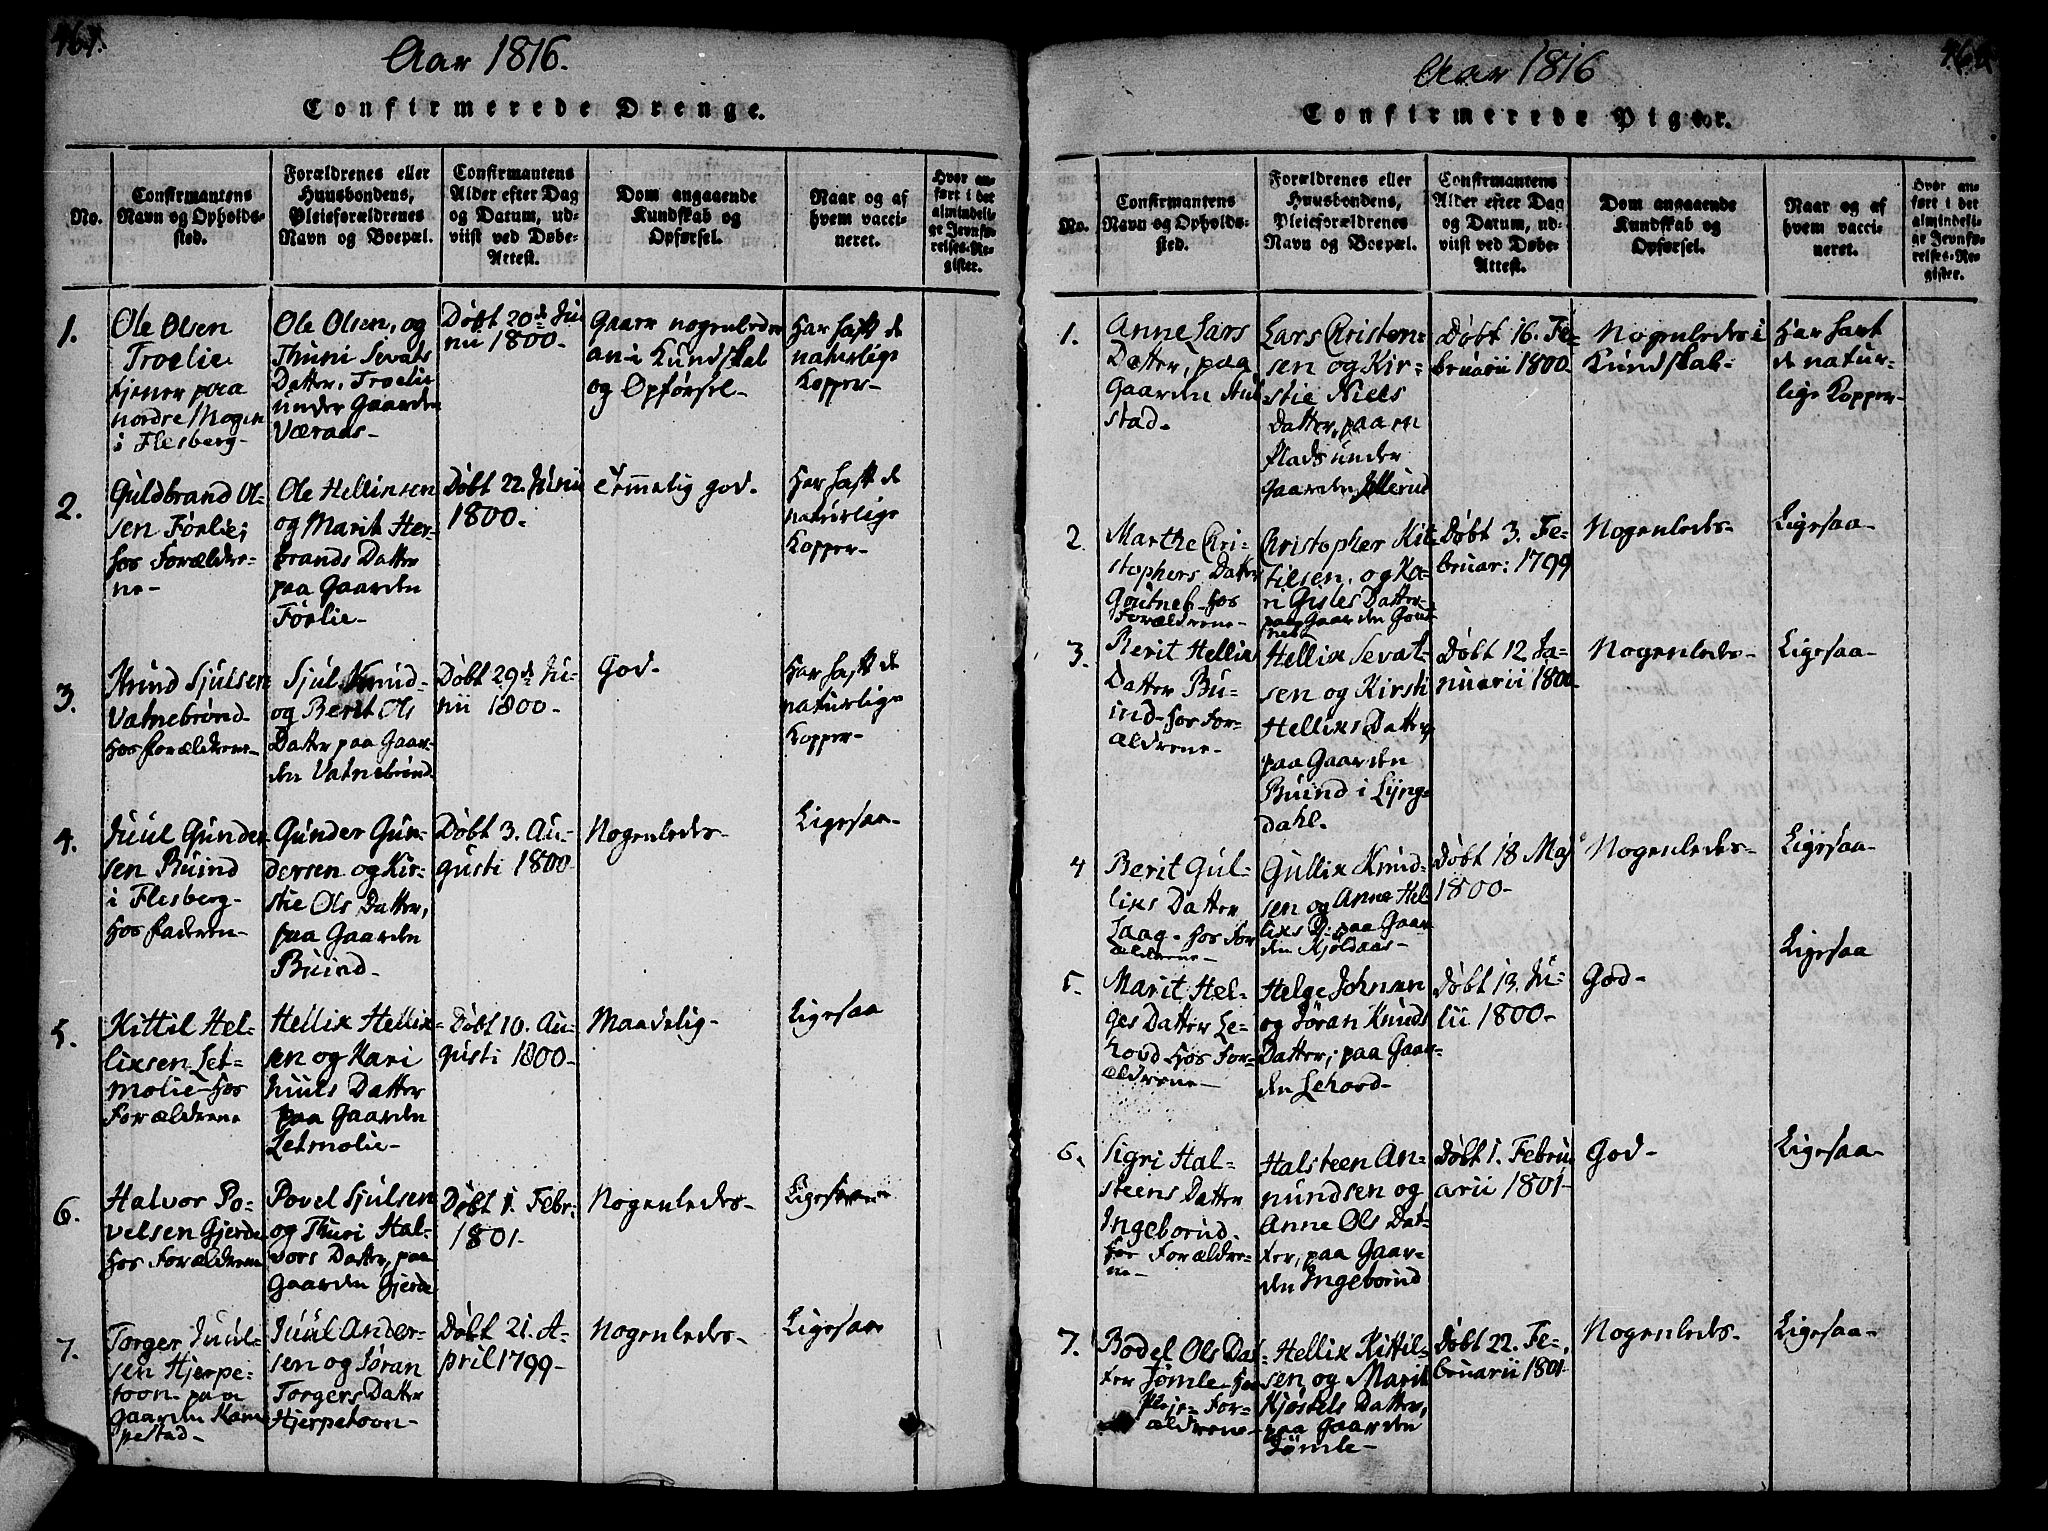 Aar 1816.
Confirmerede Drenge.
No.
Confirmantens
Navn og Opholds-
sted.
Forældrenes eller
Huusbondens,
Pleieforældrenes
Navn og Boepæl.
Confirmantens
Alder efter Dag
og Datum, ud-
viist ved Døbe-
Attest.
Dom angaaende
Kundskab og
Opførsel.
Naar og af
hvem vacci-
neret.
Hvor an-
ført i det
almindeli-
ge Jevnfø-
relses-Re-
gister.
1.
Ole Olsen
Troelie
tjener paa
nordre Mogen
i Flesberg-
Ole Olsen, og
Thuri Sevats
Datter, Troelie
under Gaarden
Væraas-
Døbt 20de Ju
nii 1800-
Gaaer nogenledes
an i Kundskab
og Opførsel-
Har haft de
naturlige
Kopper-
2.
Guldbrand Ol-
sen Førlie;
hos Forældre-
ne-
Ole Hellinsen
og Marit Her-
brands Datter
paa Gaarden
Førlie-
Døbt 22. Junii
1800-
Temmelig god.
Har haft de
naturlige
Kopper-
3.
Knud Sjulsen
Vatnebrønd-
hos forældrene-
Sjul Knud-
og Berit Ols
Datter paa Gaar-
den Vatnebrønd
Døbt 29de Ju-
nii 1800-
God-
Har haft de
naturlige
Kopper-
4.
Juul Gunder
sen Buind
i Flesberg-
hos faderen-
Gunder Gun-
dersen og Kir-
stie Ols Datter,
paa Gaarden
Buind-
Døbt 3. Au-
gusti 1800
Nogenledes-
Ligesaa-
5.
Kittil Hel-
lixsen Let-
molie-hos
Forældrene
Hellix Hellix-
sen og Kari
Juuls Datter
paa Gaarden
Letmolie-
Døbt 10. Au-
gusti 1800-
Maadelig-
Ligesaa
6.
Halvor Po-
velsen Gjerde
hos Forældrene
Povel Sjulsen
og Thuri Hal-
vors Datter, paa
Gaarden Gjerde
Døbt 1. Febr:
1801-
Nogenledes-
Ligesaa
7.
Torger Juul-
sen Hjerpe-
toon- paa
Gaarden Kam
pestad-
Juul Ander-
sen og Jøran
Torgers Datter
Hjerpetoon-
Døbt 21. A-
pril 1799-
Nogenledes-
Ligesaa
Aar 1816
Confirmerede Piger.
No.
Confirmantens
Navn og Opholds-
sted.
Forældrenes eller
Huusbondens,
Pleieforældrenes
Navn og Boepæl.
Confirmantens
Alder efter Dag
og Datum, ud-
viist ved Døbe-
Attest.
Dom angaaende
Kundskab og
Opførsel.
Naar og af
hvem vacci-
neret.
Hvor an-
ført i det
almindeli-
ge Jevnfø-
relses-Re-
gister.
1.
Anne Lars
Datter, paa
Gaarden
stad.
Lars Christen-
sen og Kir-
stie Niels
Datter, paa en
Plads under
Gaarden
Døbt 16. Fe-
bruarii 1800-
Nogenledes i
Kundskab-
Har havt
de natur-
lige Kopper-
2.
Marthe Chri-
stophers Datter
Goutneb-hos
Forældrene-
Christopher Kit-
tilsen, og Ka-
ri Gisles Datter-
paa Gaarden Gout
neb
Døbt 3. Fe-
bruar: 1799
Nogenleds-
Ligesaa-
3.
Berit Hellix
Datter Bu-
ind-hos For-
ældrene-
Hellix Sevat-
sen og Kirsti
Hellixs Datter
paa Gaarden
Buind i Lyng-
dahl.
Døbt 12 Ja-
nuarii 1800-
Nogenleds-
Ligesaa-
4
Berit Gul-
lixs Datter
Laag- hos For
ældrene-
Gullix Knud-
sen og Anne Hel
lixs D: paa Gaar
den Kjøldaas-
Døbt 18 Maj
1800-
Nogenledes-
Ligesaa-
5.
Marit Hel-
ges Datter Le-
hovd hos For-
ældrene-
Helge Johnsen
og Jøran Knuds
Datter, paa Gaar-
den Lehovd-
Døbt 13. Ju-
lii 1800-
God-
Ligesaa
6.
Sigri Hal-
steens Datter
Ingeborud.
hos Forældre-
ne-
Halsteen An-
nundsen og
Anne Ols Dat-
ter, paa Gaar-
den Ingeborud
Døbt 1. Febru
arii 1801-
God-
Ligesaa-
7.
Bodel Ols Dat-
ter Jømle- hos
Pleje-For-
ældrene-
Hellix Kittil-
sen, og Marit
Kjøstels Datter,
paa Gaarden
Jømle-
Døbt 22. Fe-
bruarii 1801-
Nogenleds-
Ligesaa-